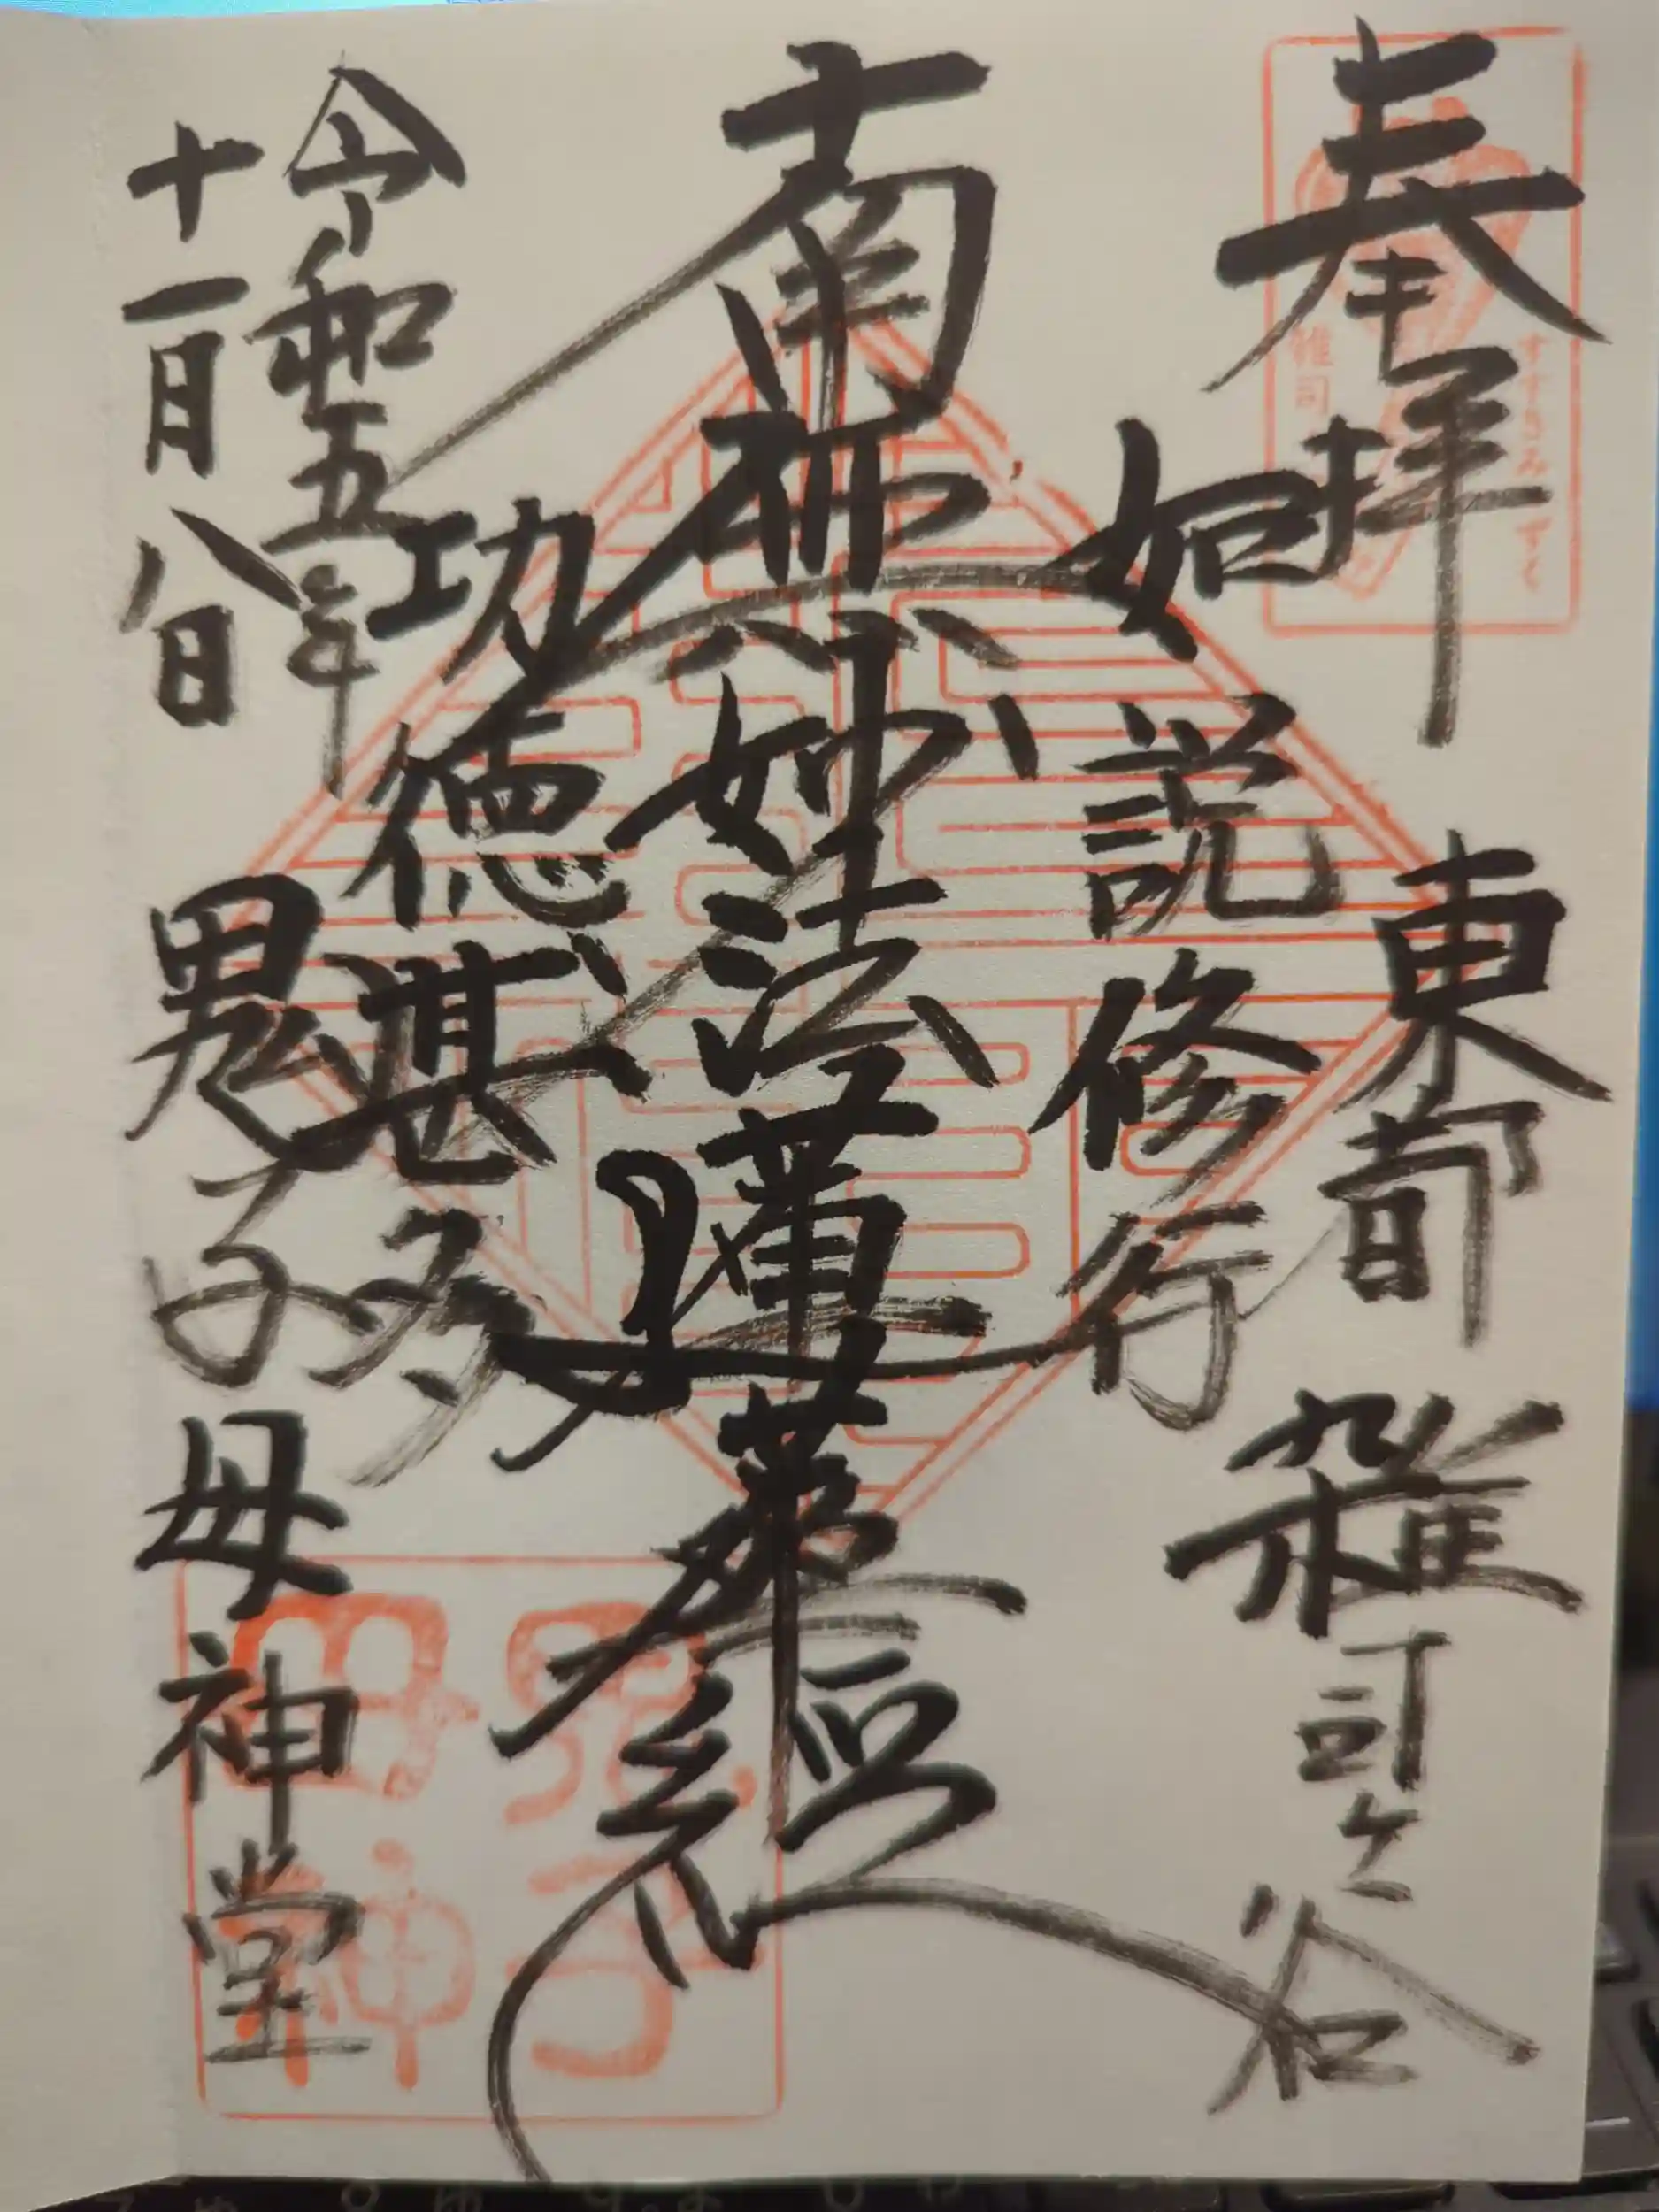 奉拝
東都 雑司ケ谷
如説修行
南無妙法蓮華經
功徳甚多
令和五年
十一月八日
鬼子母神堂
雑司
すすきみみずく
鬼子
母神